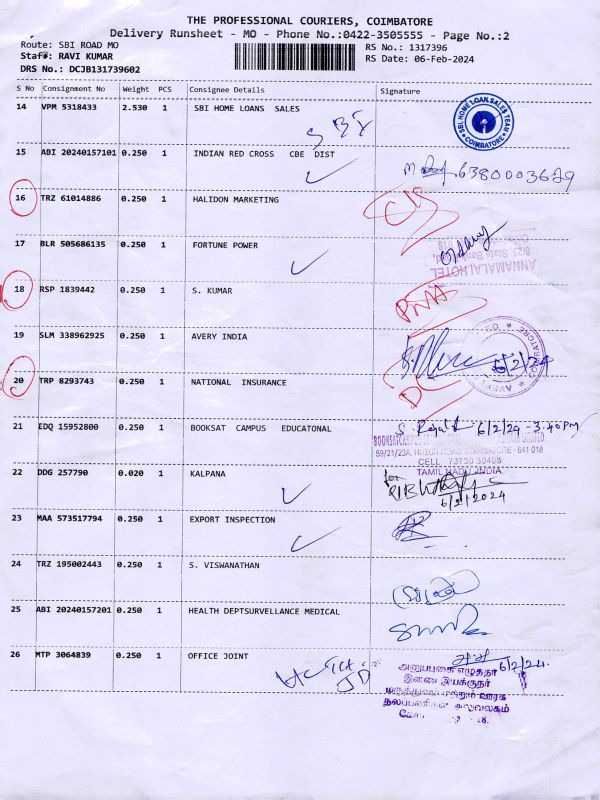 THE PROFESSIONAL COURIERS, COIMBATORE
Delivery Runsheet - MO - Phone No.:0422-3505555 - Page No.:2
Route: SBI ROAD MO RS No.: 1317396
Staff: RAVI KUMAR RS Date: 06-Feb-2024
DRS No.: DCJB131739602
S No Consignment No Weight PCS Consignee Details Signature
14 VPM 5318433 2.530 1 SBI HOME LOANS SALES
SBI HOME LOAN SALES TEAM COIMBATORE
15 ABI 20240157101 0.250 1 INDIAN RED CROSS CBE DIST
6380003629
16 TRZ 61014886 0.250 1 HALIDON MARKETING
17 BLR 505686135 0.250 1 FORTUNE POWER
ANNAMALAI HOTEL
8/25 State Bank
18 RSP 1839442 0.250 1 S. KUMAR
19 SLM 338962925 0.250 1 AVERY INDIA
6/2/24
20 TRP 8293743 0.250 1 NATIONAL INSURANCE
21 EDQ 15952800 0.250 1 BOOKSAT CAMPUS EDUCATONAL
6/2/24 - 3.40PM
59/21/23A, HUZUR ROAD COIMBATORE - 641 018
CELL 73730 30408
TAMIL NADU INDIA
22 DDG 257790 0.020 1 KALPANA
6/2/2024
23 MAA 573517794 0.250 1 EXPORT INSPECTION
24 TRZ 195002443 0.250 1 S. VISWANATHAN
25 ABI 20240157201 0.250 1 HEALTH DEPTSURVELLANCE MEDICAL
26 MTP 3064839 0.250 1 OFFICE JOINT
6/2/24.
இணை இயக்குநர்
மருத்துவம் மற்றும் ஊரக